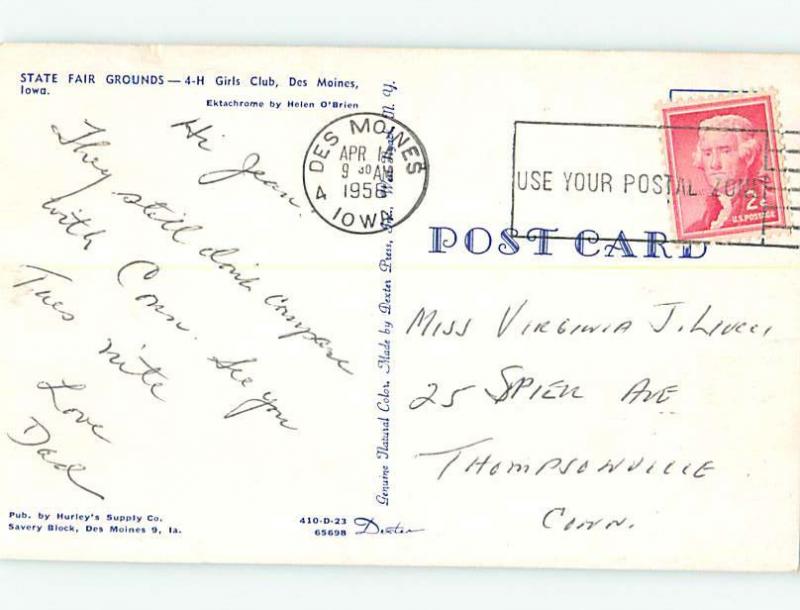 STATE FAIR GROUNDS — 4-H Girls Club, Des Moines,
Iowa.
Ektachrome by Helen O'Brien
Hi Jean.
They still don't compare
with Conn. See you
Tues nite
Love
Dad
Pub. by Hurley's Supply Co.
Savery Block, Des Moines 9, Ia.
410-D-23
65698
Dexter
Genuine Natural Color. Made by Dexter Press, Inc., West Nyack, N. Y.
DES MOINES
APR
9 30 AM
1956
4 IOWA
USE YOUR POSTAL ZONE
2¢
U.S. POSTAGE
POST CARD
Miss Virginia J. Liucci
25 Spier Ave
Thompsonville
Conn.